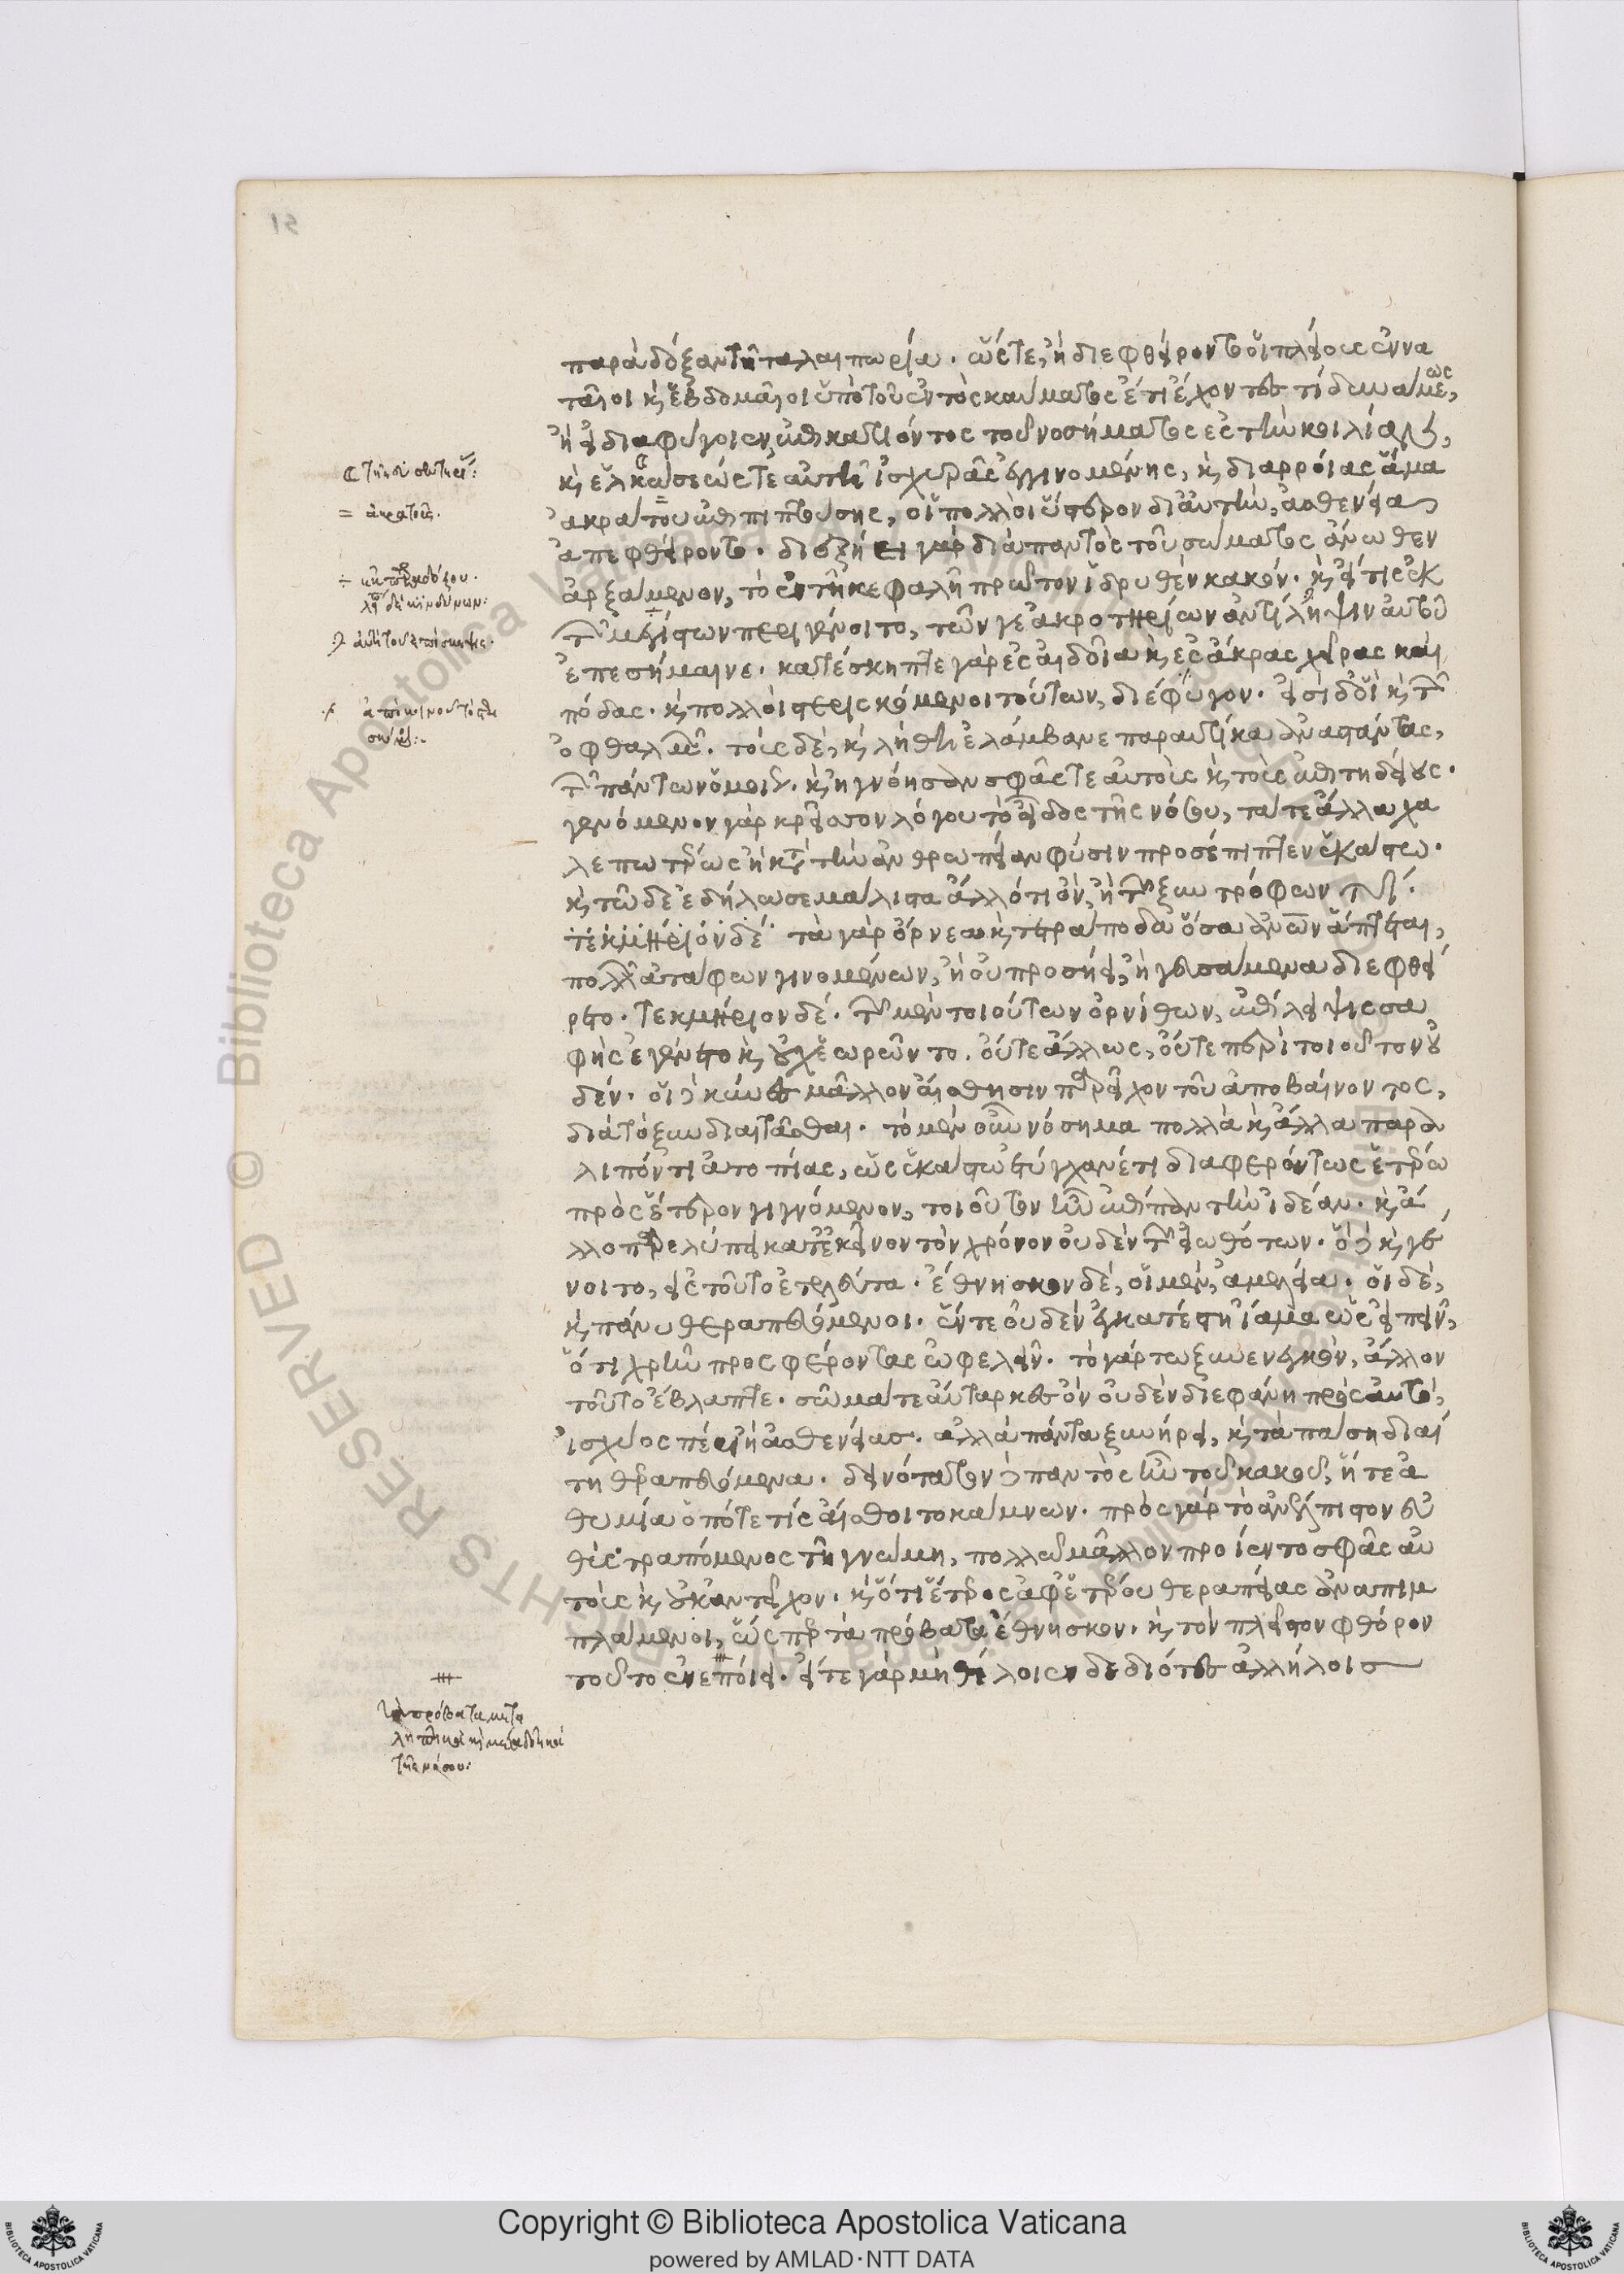 παρὰ δόξαν τῆ ταλαιπωρία. ὥστε, ἢ διεφθείροντο οἱ πλεῖστοι ἐννα
ταῖοι κ, ἑβδομαῖοι ὑπὸ τοῦ ἐντὸς καύματος ἔτι ἔχοντες τὶ δυνάμεως,
ἢ εἰ διαφύγοιεν, ἐπικατιόντος τοῦ νοσήματος ἐς τὴν κοιλίαν,
κ, ἑλκώσεώς τε αὐτῆ ἰσχυρᾶς ἐγγινομένης, κ, διαρροίας ἅμα
ἀκράτου ἐπιπιπτούσης, οἱ πολλοὶ ὕστερον δι' αὐτὴν, ἀσθενεία
ἀπεφθείροντο. διεξήει γὰρ διὰ παντὸς τοῦ σώματος ἄνωθεν
ἀρξάμενον, τὸ ἐν τῆ κεφαλῆ πρῶτον ἱδρυθὲν κακόν. κ, εἴ τις ἐκ
τῶν μεγίστων περιγένοιτο, τῶν γε ἀκροτηρίων ἀντίληψιν αὐτοῦ
ἐπεσήμαινε. κατέσκηπτε γὰρ ἐς αἰδοῖα κ, ἐς ἄκρας χεῖρας καὶ
πόδας. κ, πολλοὶ στερισκόμενοι τούτων, διέφυγον. εἰσὶ δ' οἳ κ, τῶν
ὀφθαλμῶν. τοὺς δὲ, κ, λήθη ἐλάμβανε παραυτίκα ἀναστάντας,
τῶν πάντων ὁμοίως. κ, ἠγνόησαν σφᾶς τε αὐτοὺς κ, τοὺς ἐπιτηδείους.
γενόμενον γὰρ κρεῖσσον λόγου τὸ εἶδος τῆς νόσου, τά τε ἄλλα χα
λεπωτέρως ἢ κατὰ τὴν ἀνθρωπείαν φύσιν προσέπιπτεν ἑκάστω.
κ, τῶδε ἐδήλωσε μάλιστα ἄλλό τι ὂν, ἢ τῶν ξυντρόφων τί.
τεκμήριον δέ· τὰ γὰρ ὄρνεα κ, τετράποδα ὅσα ἀνων ἅπτεται,
πολλῶν ἀτάφων γινομένων, ἢ οὐ προσήει, ἢ γευσάμενα διεφθεί
ρετο. τεκμήριον δέ. τῶν μὲν τοιούτων ὀρνίθων, ἐπίλειψις σα
φὴς ἐγένετο κ, οὐχ ἑωρῶντο. οὔτε ἄλλως, οὔτε περὶ τοιοῦτον οὐ
δέν. οἱ δὲ κύνες μᾶλλον αἴσθησιν παρεῖχον τοῦ ἀποβαίνοντος,
διὰ τὸ ξυνδιαιτᾶσθαι. τὸ μὲν οὖν νόσημα πολλὰ κ, ἄλλα παρα
λιπόντι ἀτοπίας, ὡς ἑκάστω ἐτύγχανέ τι διαφερόντως ἑτέρω
πρὸς ἕτερον γιγνόμενον, τοιοῦτον ἦν ἐπίπαν τὴν ἰδέαν. κ, ἄ
λλο παρελύπει κατ' ἐκεῖνον τὸν χρόνον οὐδὲν τῶν εἰωθότων. ὃ δὲ κ, γέ
νοιτο, εἰς τοῦτο ἐτελεύτα. ἔθνησκον δὲ, οἱ μὲν, ἀμελεία. οἱ δὲ,
κ, πάνυ θεραπευόμενοι. ἕν τε οὐδὲν κατέστη ἴαμα ὡς εἰπεῖν,
ὅτι χρῆν προσφέροντας ὠφελεῖν. τὸ γάρ τω ξυνενεγκὸν, ἄλλον
τοῦτο ἔβλαπτε. σῶμά τε αὔταρκες ὂν οὐδὲν διεφάνη πρὸς αὐτὸ,
ἰσχύος πέρι ἢ ἀσθενείας. ἀλλὰ πάντα ξυνήρει, κ, τὰ πάση διαί
τη θεραπευόμενα. δεινότατον δὲ παντὸς ἦν τοῦ κακοῦ, ἥ τε ἀ
θυμία ὁπότε τίς αἴσθοιτο κάμνων. πρὸς γὰρ τὸ ἀνέλπιστον εὐ
θὺς τραπόμενος τῆ γνώμη, πολλῶ μᾶλλον προίεντο σφᾶς αὐ
τοὺς κ, οὐκ ἀντεῖχον. κ, ὅτι ἕτερος ἀφ' ἑτέρου θεραπείας ἀναπιμ
πλάμενοι, ὥσπερ τὰ πρόβατα ἔθνησκον. κ, τὸν πλεῖστον φθόρον
τοῦτο ἐνεποίει. εἴτε γὰρ μὴ θέλοιεν δεδιότες ἀλλήλοις
= ἀκρατοῦς.
τὰ πρόβατα
τῆς νόσου: